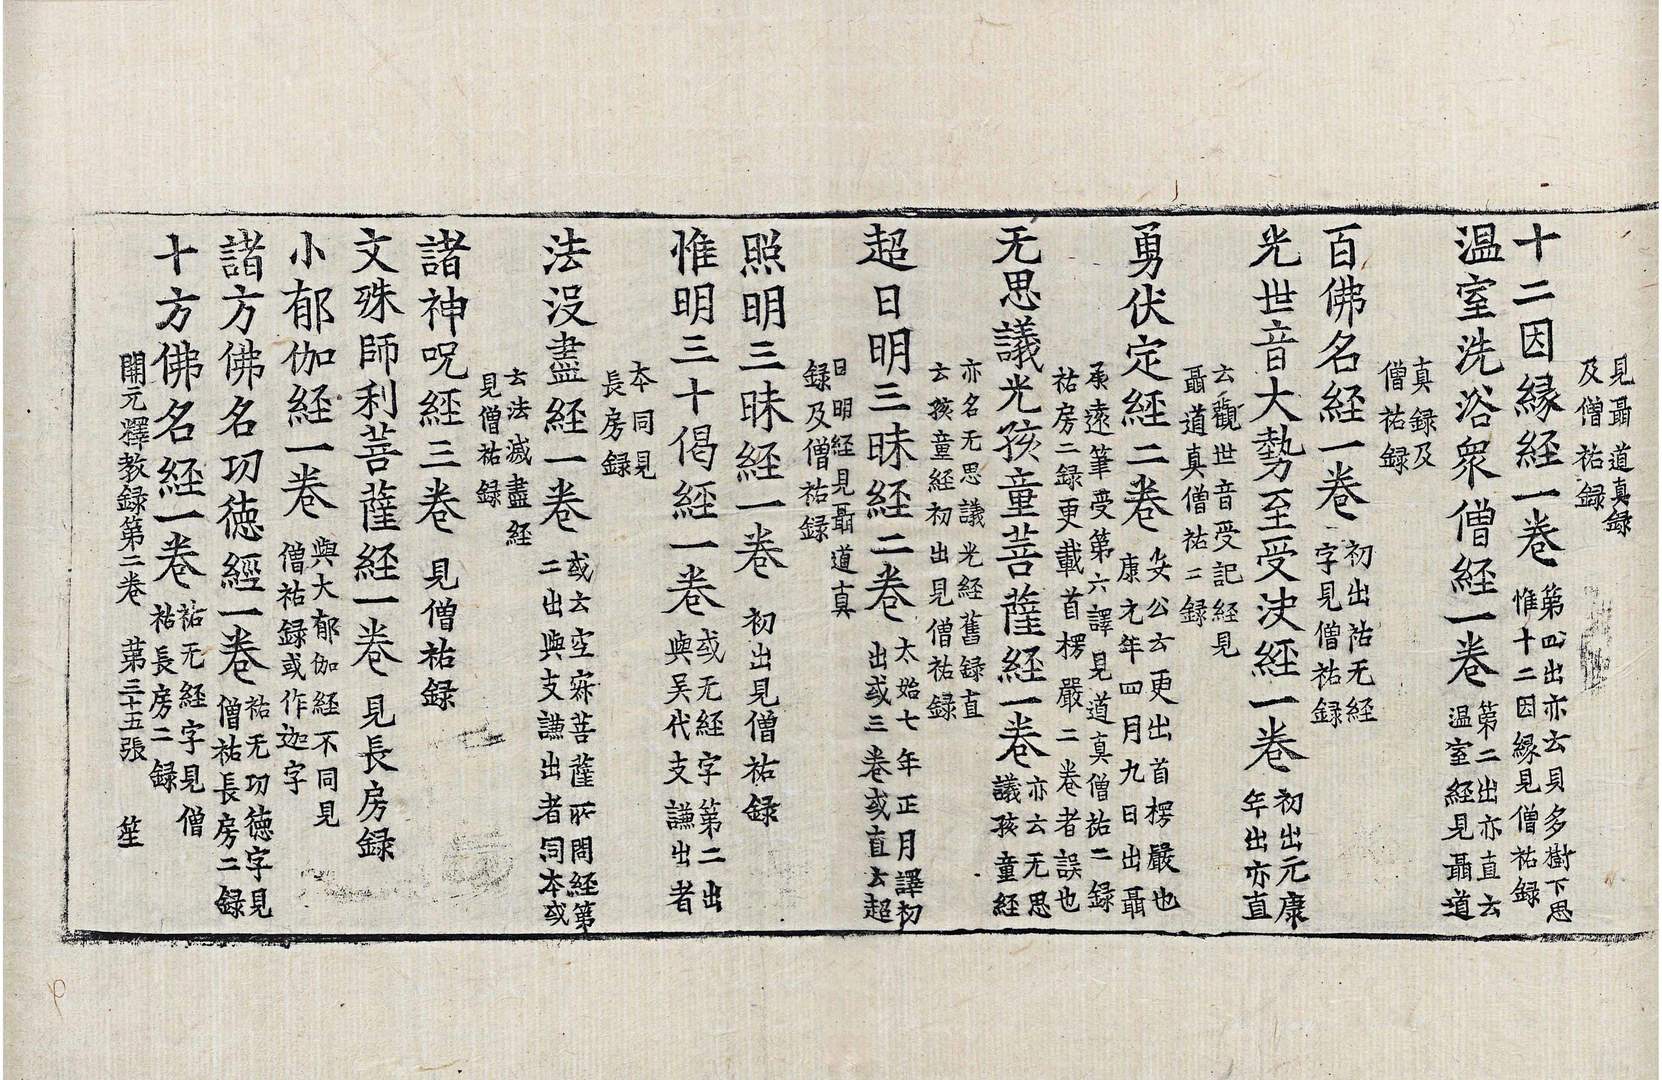 見聶道真録
及僧祐録
十二因縁経一巻
第四出亦云貝多樹下思
惟十二因縁見僧祐録
温室洗浴衆僧経一巻
第二出亦直云
温室経見聶道
真録及
僧祐録
百佛名経一巻
初出祐无経
字見僧祐録
光世音大勢至受决経一巻
初出元康
年出亦直
云觀世音受記経見
聶道真僧祐二録
勇伏定経二巻
安公云更出首楞嚴也
康元年四月九日出聶
承遠筆受第六譯見道真僧祐二録
祐房二録更載首楞嚴二巻者誤也
无思議光孩童菩薩経一巻
亦云无思
議孩童経
亦名无思議光経舊録直
云孩童経初出見僧祐録
超日明三昧経二巻
太始七年正月譯初
出或三巻或直云超
日明経見聶道真
録及僧祐録
照明三昧経一巻
初出見僧祐録
惟明三十偈経一巻
或无経字第二出
與吴代支謙出者
本同見
長房録
法没盡経一巻
或云空寂菩薩所問経第
二出與支謙出者同本或
云法滅盡経
見僧祐録
諸神呪経三巻
見僧祐録
文殊師利菩薩経一巻
見長房録
小郁伽経一巻
與大郁伽経不同見
僧祐録或作迦字
諸方佛名功徳經一巻
祐无功徳字見
僧祐長房二録
十方佛名経一巻
祐无経字見僧
祐長房二録
開元釋教録第二巻　第三十五張　笙